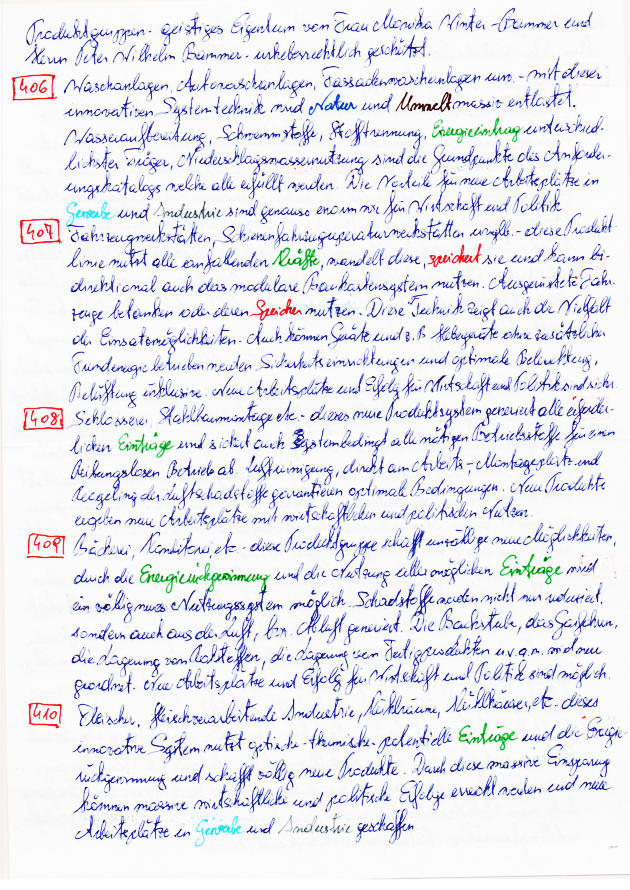 Produktgruppen - geistiges Eigentum von Frau Monika Winter-Brammer und
Herrn Peter Wilhelm Brammer - urheberrechtlich geschützt.
406 Waschanlagen, Autowaschanlagen, Fassadenwaschanlagen usw. - mit dieser
innovativen Systemtechnik wird Natur und Umwelt massiv entlastet.
Wasseraufbereitung, Schwemmstoffe, Stofftrennung, Energieeintrag unterschied-
lichster Träger, Niederschlagswassernutzung sind die Grundpunkte des Anforder-
ungskatalogs welche alle erfüllt werden. Die Vorteile für neue Arbeitsplätze in
Gewerbe und Industrie sind genauso enorm wie für Wirtschaft und Politik
407 Fahrzeugwerkstätten, Schienenfahrzeugreparaturwerkstätten - diese Produkt-
linie nutzt alle einfallenden Kräfte, wandelt diese, speichert sie und kann bi-
direktional auch das modulare Baukastensystem nutzen. Ausgerüstete Fahr-
zeuge betanken oder deren Speicher nutzen. Diese Technik zeigt auch die Vielfalt
der Einsatzmöglichkeiten. Auch können Geräte und z.B Hebegeräte ohne zusätzliche
Fremdenergie betrieben werden. Sicherheitseinrichtungen und optimale Beleuchtung,
Belüftung inklusive. Neue Arbeitsplätze und Erfolg für Wirtschaft und Politik sind sicher.
408 Schlosserei, Stahlbaumontage etc. - dieses neue Produktsystem generiert alle erforder-
lichen Einträge und sichert auch systembedingt alle nötigen Betriebsstoffe für einen
Reibungslosen Betrieb ab. Luftreinigung, direkt am Arbeits-, Montageplatz und
Regelung der Luftschadstoffe garantieren optimale Bedingungen. Neue Produkte
ergeben neue Arbeitsplätze mit wirtschaftlichen und politischen Nutzen.
409 Bäckerei, Konditorei, etc - diese Produktgruppe schafft unzählige neue Möglichkeiten,
durch die Energierückgewinnung und die Nutzung aller möglichen Einträge wird
ein völlig neues Nutzungssystem möglich. Schadstoffe werden nicht nur reduziert,
sondern auch aus der Luft, bzw. Abluft generiert. Die Backstube, das Gärfahren,
die Lagerung von Rohstoffen, die Lagerung von Fertigprodukten u.v.a.m. wird neu
geordnet. Neue Arbeitsplätze und Erfolg für Wirtschaft und Politik sind möglich.
410 Fleischer, fleischverarbeitende Industrie, Kühlräume, Kühlhäuser, etc - dieses
innovative System nutzt optische - thermische - potentielle Einträge und die Energie-
rückgewinnung und schafft völlig neue Produkte. Durch diese massive Einsparung
können massive wirtschaftliche und politische Erfolge erreicht werden und neue
Arbeitsplätze in Gewerbe und Industrie geschaffen